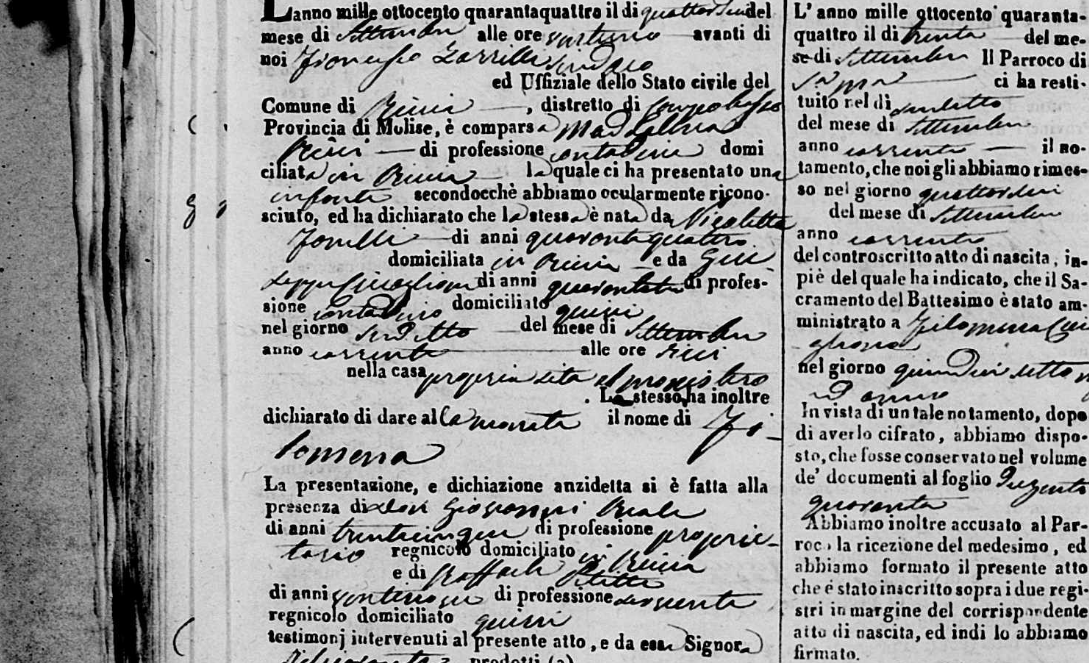 Lanno mille ottocento quarantaquattro il di quattordici del
mese di Settembre alle ore avanti di
noi Francesco Zarrilli Sindaco
ed Uffiziale dello Stato civile del
Comune di Riccia, distretto di Campobasso
Provincia di Molise, è comparsa Maddalena
di professione contadina domi
ciliata in Riccia la quale ci ha presentato una
infante secondocchè abbiamo ocularmente ricono-
sciuto, ed ha dichiarato che la stessa è nata da Nicoletta
Fanelli di anni quarantaquattro
domiciliata in Riccia e da Giu
seppe Ciccaglione di anni di profes-
sione contadino domiciliato quivi
nel giorno sudetto del mese di Settembre
anno corrente alle ore dieci
nella casa propria sita
. La stessa ha inoltre
dichiarato di dare alla neonata il nome di Fi-
lomena
La presentazione, e dichiazione anzidetta si è fatta alla
presenza di don Giovanni Reale
di anni trentacinque di professione proprie-
tario regnicolo domiciliato in Riccia
e di Raffaele
di anni di professione serviente
regnicolo domiciliato quivi
testimonj intervenuti al presente atto, e da essa Signora
prodotti (a)
L' anno mille ottocento quaranta-
quattro il di trenta del me-
se di Settembre Il Parroco di
ci ha resti-
tuito nel di sudetto
del mese di Settembre
anno corrente il no-
tamento, che noi gli abbiamo rimes-
so nel giorno quattordici
del mese di Settembre
anno corrente
del controscritto atto di nascita, in-
piè del quale ha indicato, che il Sa-
cramento del Battesimo è stato am-
ministrato a Filomena Cicca
glione
nel giorno quindici detto mese
ed anno
In vista di un tale notamento, dopo
di averlo cifrato, abbiamo dispo-
sto, che fosse conservato nel volume
de' documenti al foglio Dugento
quaranta
Abbiamo inoltre accusato al Par-
roco la ricezione del medesimo, ed
abbiamo formato il presente atto
che è stato inscritto sopra i due regi-
stri in margine del corrispondente
atto di nascita, ed indi lo abbiamo
firmato.